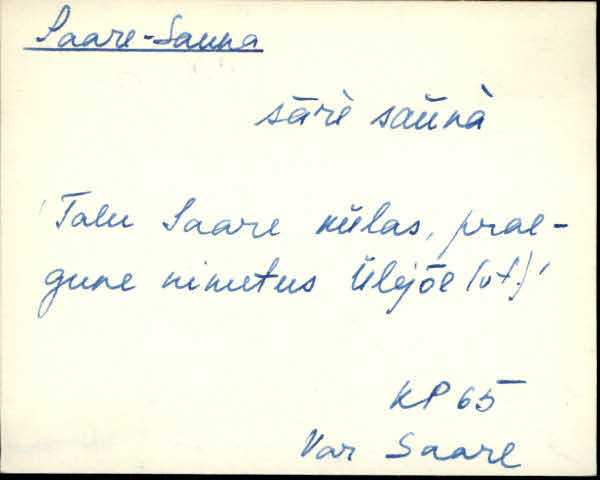 Saare-Sauna
sāŕè saūnà
'Talu Saare külas, prae-
gune nimetus Ülejõe (vt.)'
KP 65
Var Saare